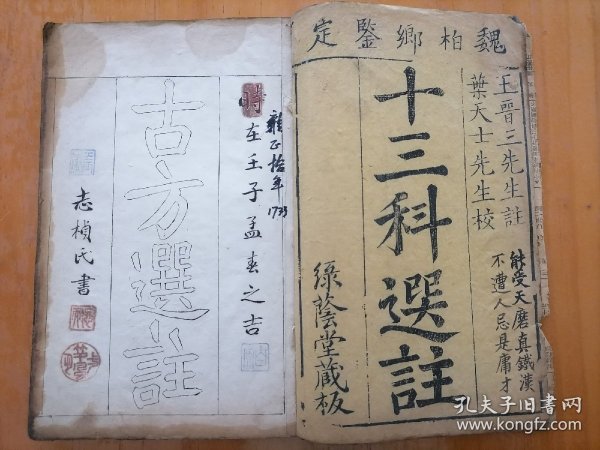 魏柏鄉鑒定
王晋三先生註
葉天士先生校
能受天磨真鐵漢
不遭人忌是庸才
十三科選註
綠蔭堂藏板
雍正拾年1733
時在壬子孟春之吉
古方選註
志楨氏書
孔夫子旧书网
www.kongfz.com